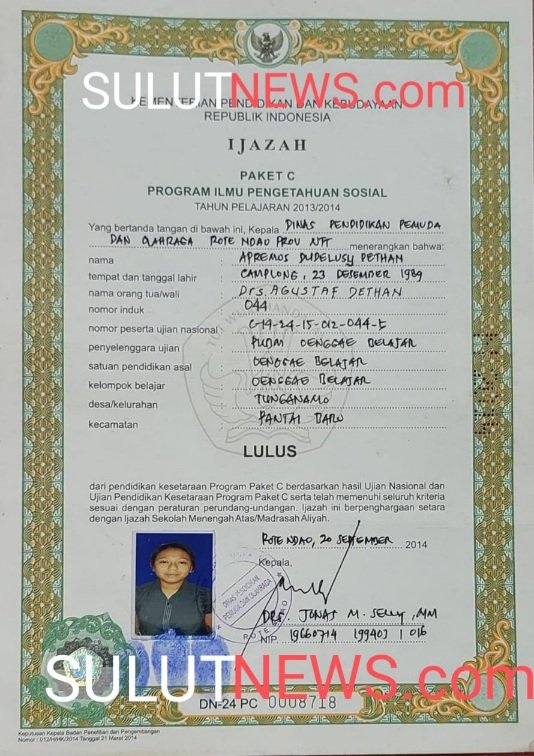 SULUTNEWS.com
KEMENTERIAN PENDIDIKAN DAN KEBUDAYAAN
REPUBLIK INDONESIA
IJAZAH
PAKET C
PROGRAM ILMU PENGETAHUAN SOSIAL
TAHUN PELAJARAN 2013/2014
Yang bertanda tangan di bawah ini, Kepala DINAS PENDIDIKAN PEMUDA
DAN OLAHRAGA ROTE NDAO PROV NTT menerangkan bahwa:
nama : APREMOS DUDELUSY DETHAN
tempat dan tanggal lahir : CAMPLONG, 23 DESEMBER 1989
nama orang tua/wali : Drs. AGUSTAF DETHAN
nomor induk : 044
nomor peserta ujian nasional : C-14-24-15-012-044-5
penyelenggara ujian : PKBM OENGGAE BELAJAR
satuan pendidikan asal : OENGGAE BELAJAR
kelompok belajar : OENGGAE BELAJAR
desa/kelurahan : TUNGANAMO
kecamatan : PANTAI BARU
LULUS
dari pendidikan kesetaraan Program Paket C berdasarkan hasil Ujian Nasional dan
Ujian Pendidikan Kesetaraan Program Paket C serta telah memenuhi seluruh kriteria
sesuai dengan peraturan perundang-undangan. Ijazah ini berpenghargaan setara
dengan Ijazah Sekolah Menengah Atas/Madrasah Aliyah.
ROTE NDAO, 20 SEPTEMBER 2014
Kepala,
DINAS PENDIDIKAN
PEMUDA DAN OLAHRAGA
ROTE NDAO
DRS. JONAS M. SELLY, MM
NIP. 19660714 199403 1 016
SULUTNEWS.com
DN-24 PC 0008718
Keputusan Kepala Badan Penelitian dan Pengembangan
Nomor : 012/H/HK/2014 Tanggal 21 Maret 2014